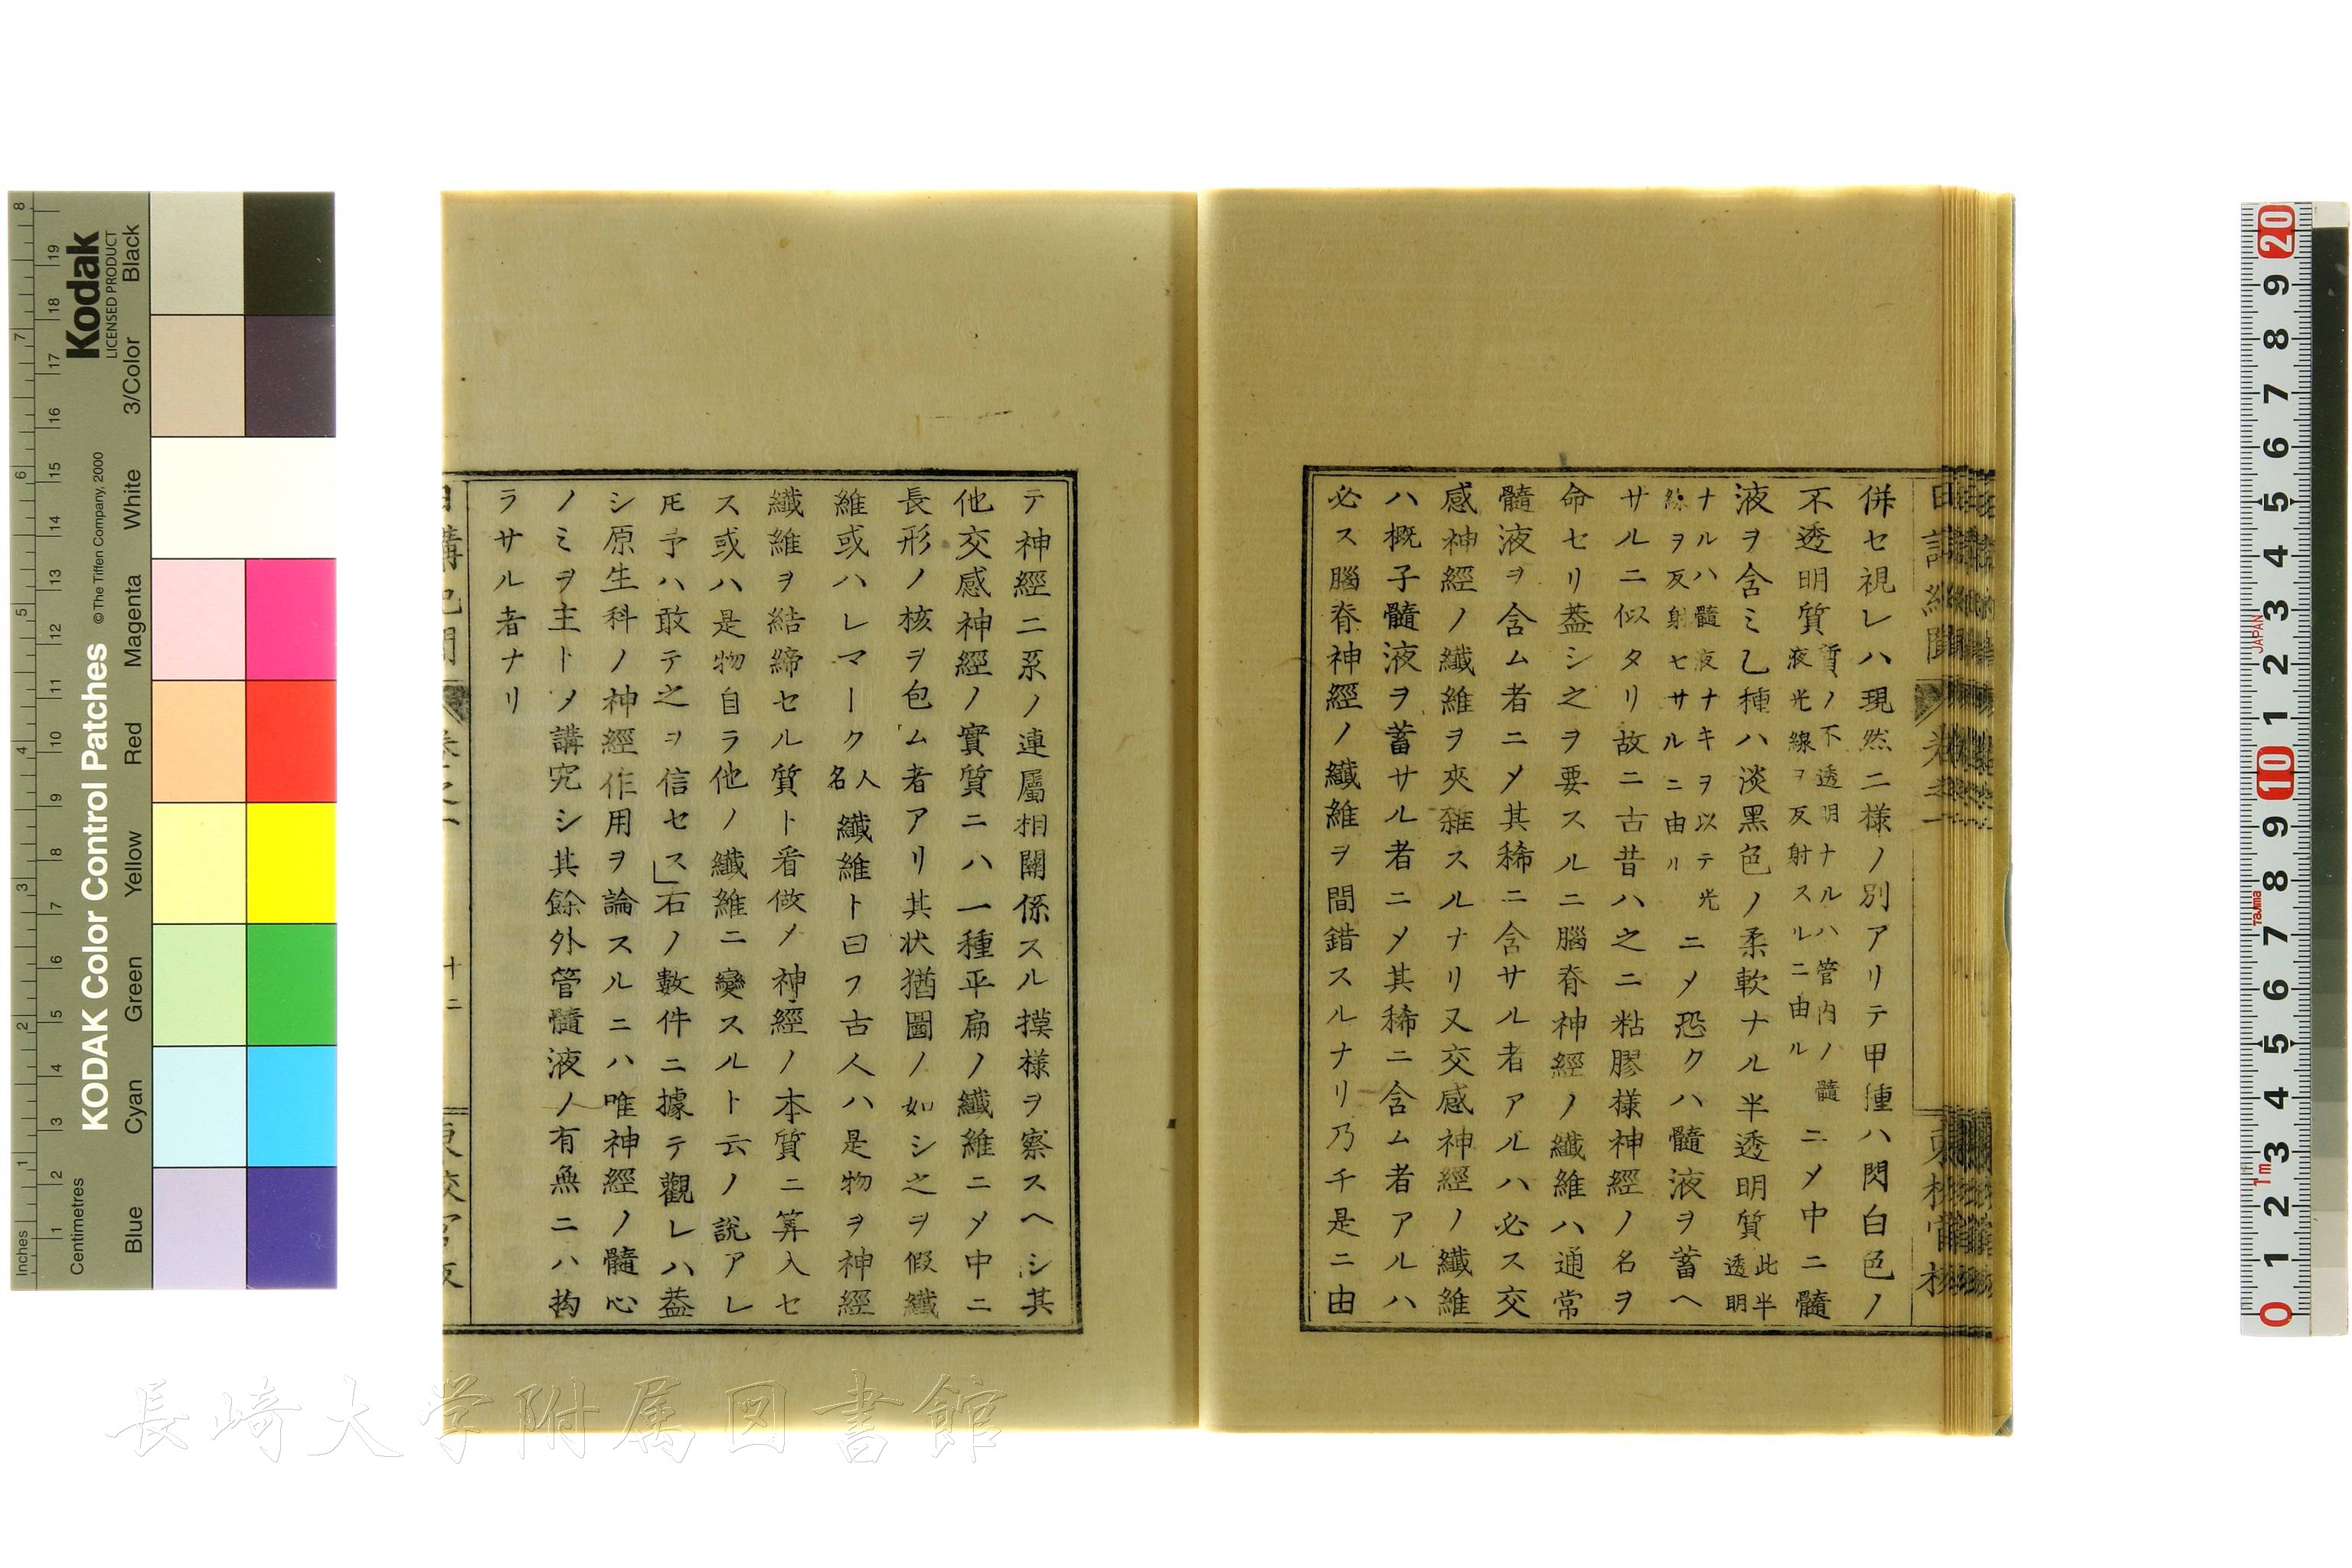 併セ視レハ現然二樣ノ別アリテ甲種ハ閃白色ノ
不透明質質ノ不透明ナルハ管内ノ髓液光線ヲ反射スルニ由ルニメ中ニ髓
液ヲ含ミ乙種ハ淡黑色ノ柔軟ナル半透明質此半透明
ナルハ髓液ナキヲ以テ光線ヲ反射セサルニ由リニメ恐クハ髓液ヲ蓄ヘ
サルニ似タリ故ニ古昔ハ之ニ粘膠樣神經ノ名ヲ
命セリ葢シ之ヲ要スルニ腦脊神經ノ纖維ハ通常
髓液ヲ含ム者ニメ其稀ニ含サル者アルハ必ス交
感神經ノ纖維ヲ夾雜スルナリ又交感神經ノ纖維
ハ概子髓液ヲ蓄サル者ニメ其稀ニ含ム者アルハ
必ス腦脊神經ノ纖維ヲ間錯スルナリ乃チ是ニ由
テ神經二系ノ連屬相關係スル摸樣ヲ察スヘシ其
他交感神經ノ實質ニハ一種平扁ノ纖維ニメ中ニ
長形ノ核ヲ包ム者アリ其狀猶圖ノ如シ之ヲ假纖
維或ハレマーク人名纖維ト曰フ古人ハ是物ヲ神經
纖維ヲ結締セル質ト看做メ神經ノ本質ニ筭入セ
ス或ハ是物自ラ他ノ纖維ニ變スルト云ノ說アレ
𪜈予ハ敢テ之ヲ信セス」右ノ數件ニ據テ觀レハ葢
シ原生科ノ神經作用ヲ論スルニハ唯神經ノ髓心
ノミヲ主トメ講究シ其餘外管髓液ノ有無ニハ拘
ラサル者ナリ
十二
KODAK Color Control Patches
©The Tiffen Company, 2000
Kodak
LICENSED PRODUCT
Blue Cyan Green Yellow Red Magenta White 3/Color Black
Inches
Centimetres
長崎大学附属図書館
JAPAN
Tajima
1m